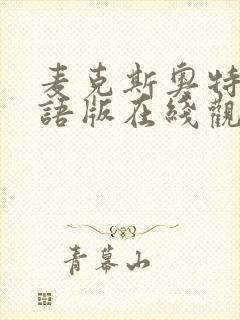 麦克斯奧特
語版在綫觀
青幕山